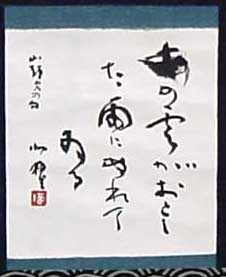 あの雲がおとし
た雨にぬれて
ゐる
山頭火の句